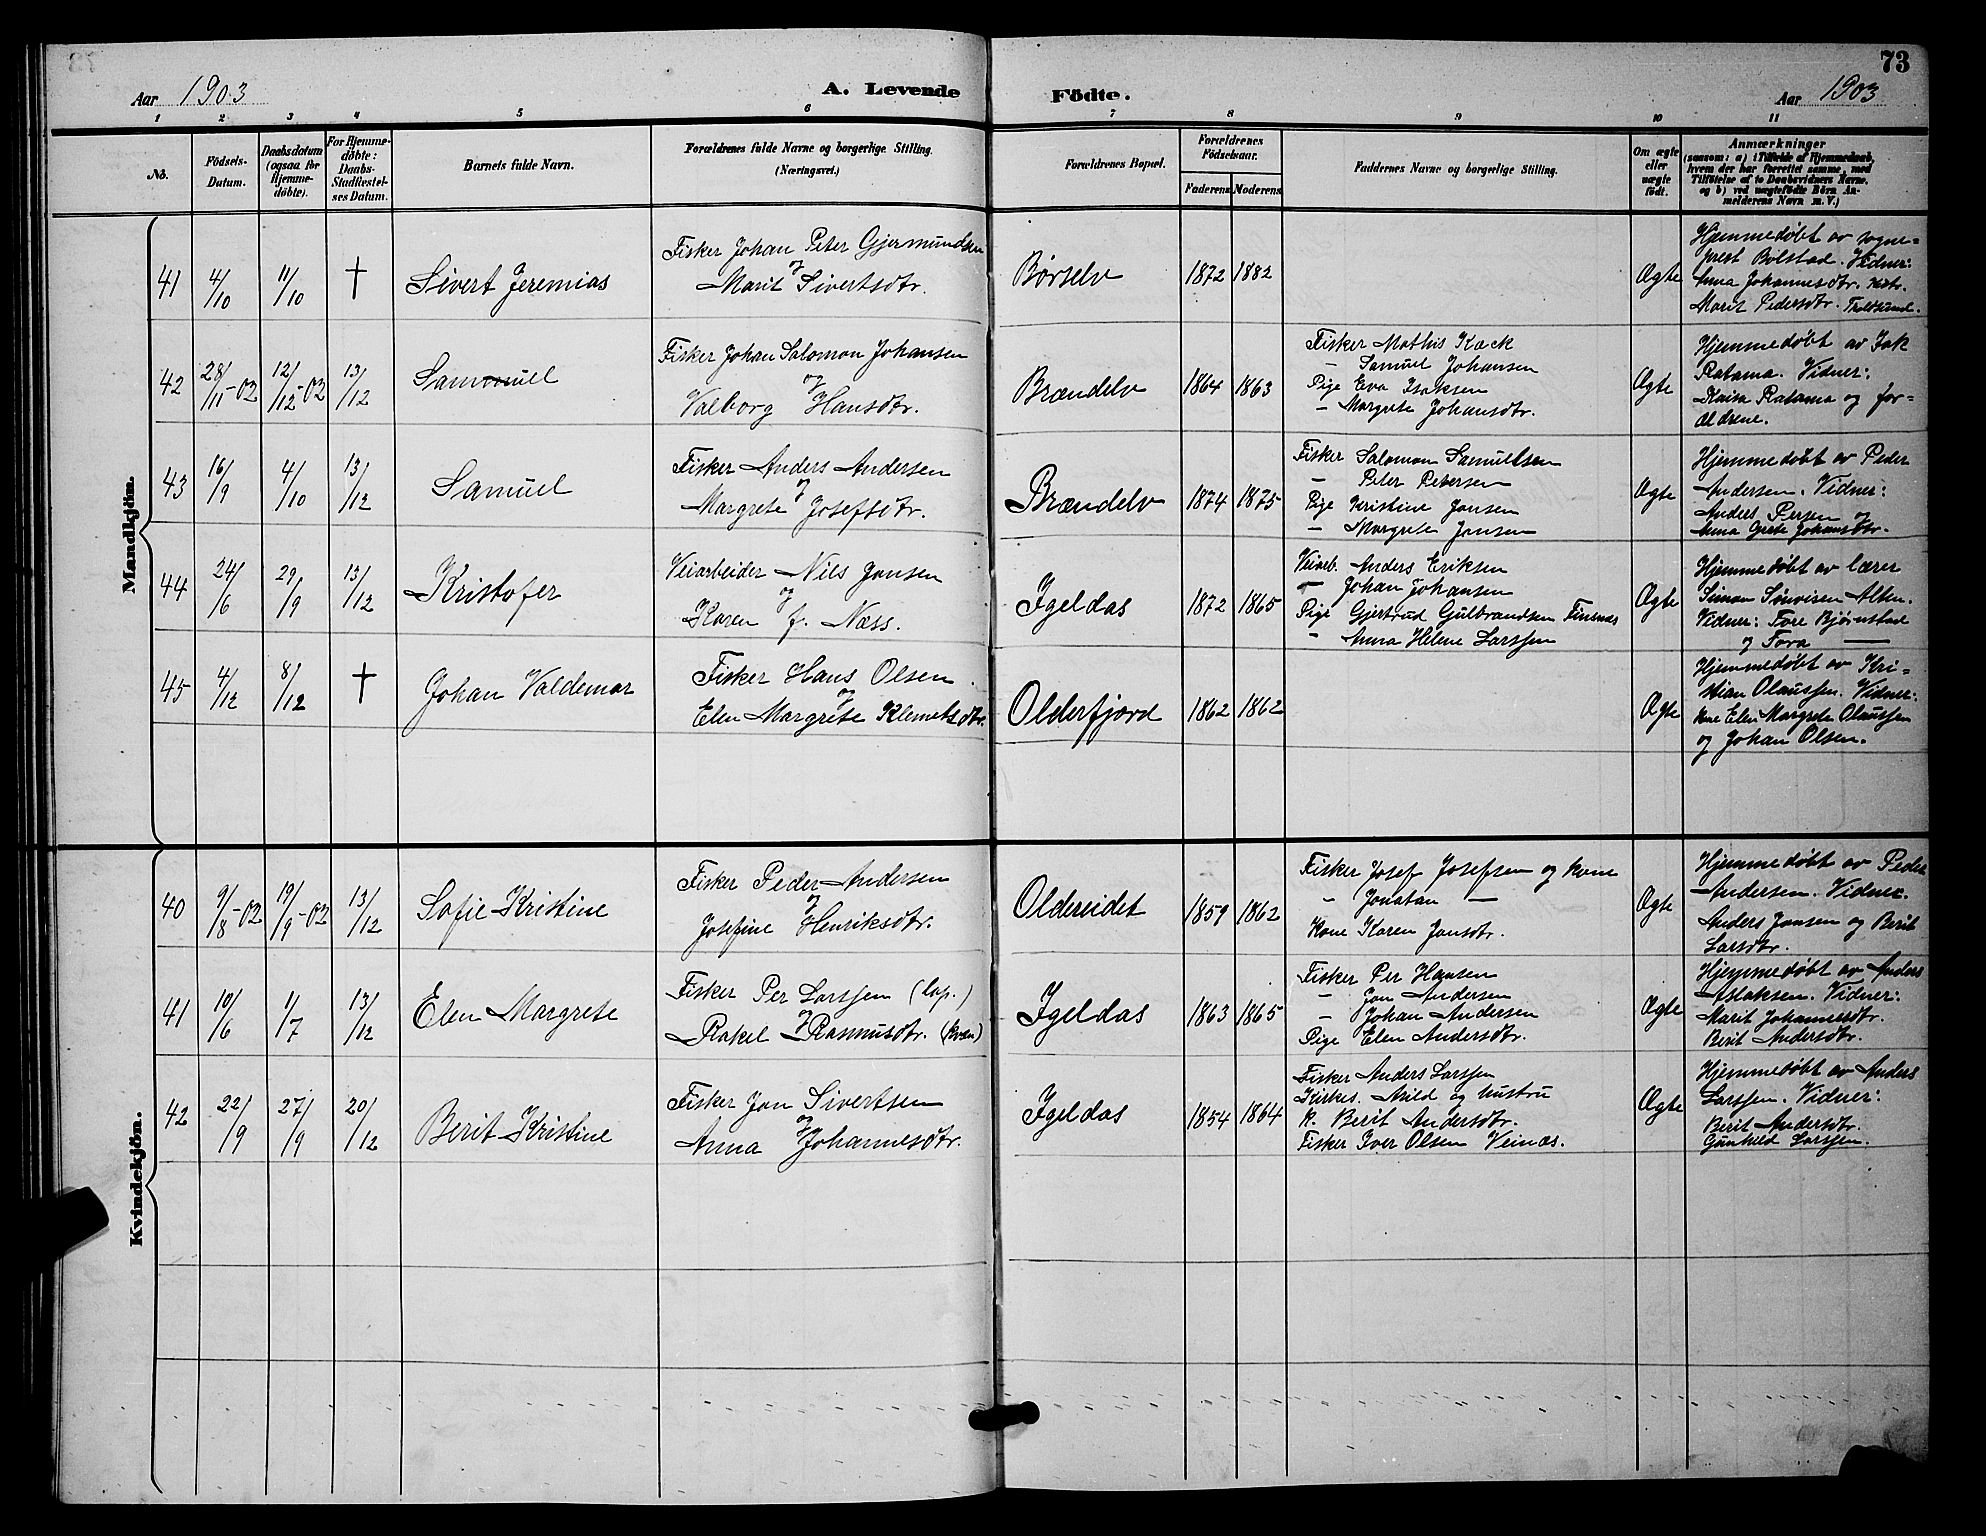 73
Aar 1903
A. Levende Födte.
Aar 1903
1 2 3 4 5 6 7 8 9 10 11
No.
Födsels-
Datum.
Daabsdatum
(ogsaa for
Hjemme-
döbte).
For Hjemme-
døbte:
Daabs-
Stadfæstel-
ses Datum.
Barnets fulde Navn.
Forældrenes fulde Navne og borgerlige Stilling.
(Næringsvei.)
Forældrenes Bopæl.
Forældrenes
Födselsaar.
Faderens Moderens
Faddernes Navne og borgerlige Stilling.
Om ægte
eller
uægte
født.
Anmærkninger
(saasom: a) i Tilfælde af Hjemmedaab,
hvem der har forrettet samme, med
Tilføielse af to Daabsvidners Navne,
og b) ved uægtefødte Börn An-
melderens Navn m. V.)
Mandkjön.
41 4/10 11/10 † Sivert Jeremias
Fisker Johan Peter Gjermundsen
og
Marit Sivertsdtr.
Børselv 1872 1882 Ægte
Hjemmedøbt av sogne-
prest Bolstad. Vidner:
Anna Johannesdtr.
Marit Pedersdtr.
42 28/11-02 12/12-02 13/12 Sammuel
Fisker Johan Salomon Johansen
og
Valborg Hansdtr.
Brændelv 1864 1863
Fisker Mathis Kæck
— Samuel Johansen
Pige Eva Isaksen
— Margrete Johansdtr.
Ægte
Hjemmedøbt av Isak
Ratama. Vidner:
Kaisa Ratama og for-
ældrene.
43 16/9 4/10 13/12 Samuel
Fisker Anders Andersen
og
Margrete Josefsdtr.
Brændelv 1874 1875
Fisker Salomon Samuelsen
— Peter Petersen
Pige Kristine Jansen
— Margrete Jansen
Ægte
Hjemmedøbt av Peder
Andersen. Vidner:
Anders Persen og
Anna Grete Johansdtr.
44 24/6 29/9 13/12 Kristofer
Veiarbeider Nils Jansen
og
Karen f. Næss.
Igeldas 1872 1865
Veiarb. Anders Eriksen
— Johan Johansen
Pige Gjertrud Gulbrandsen Finsnes
— Anna Helene Larssen
Ægte
Hjemmedøbt av lærer
Simon Alten.
Vidner: Tore Bjørnstad
og Tora —
45 4/12 8/12 † Johan Valdemar
Fisker Hans Olsen
og
Elen Margrete Klemetsdtr.
Olderfjord 1862 1862 Ægte
Hjemmedøbt av Kri-
stian Olaussen. Vidner:
kone Elen Margrete Olaussen
og Johan Olsen.
Kvindekjön.
40 9/8-02 19/9-02 13/12 Sofie Kristine
Fisker Peder Andersen
og
Josefine Henriksdtr.
Oldereidet 1859 1862
Fisker Josef Josefsen og kone
— Jonatan —
Kone Karen Jansdtr.
Ægte
Hjemmedøbt av Peder
Andersen. Vidner:
Anders Jansen og Berit
Larsdtr.
41 10/6 1/7 13/12 Elen Margrete
Fisker Per Larssen (lap.)
og
Rakel Rasmusdtr. (kvæn)
Igeldas 1863 1865
Fisker Per Hansen
— Jon Andersen
— Johan Andersen
Pige Elen Andersdtr.
Ægte
Hjemmedøbt av Anders
Aslaksen. Vidner:
Marit Johannesdtr.
Berit Andersdtr.
42 22/9 27/9 20/12 Berit Kristine
Fisker Jon Sivertsen
og
Anna Johannesdtr.
Igeldas 1854 1864
Fisker Anders Larssen
Kirkes. Arild og hustru
K. Berit Andersdtr.
Fisker Iver Olsen Veinæs.
Ægte
Hjemmedøbt av Anders
Larssen. Vidner:
Berit Andersdtr.
Gunhild Larssen.